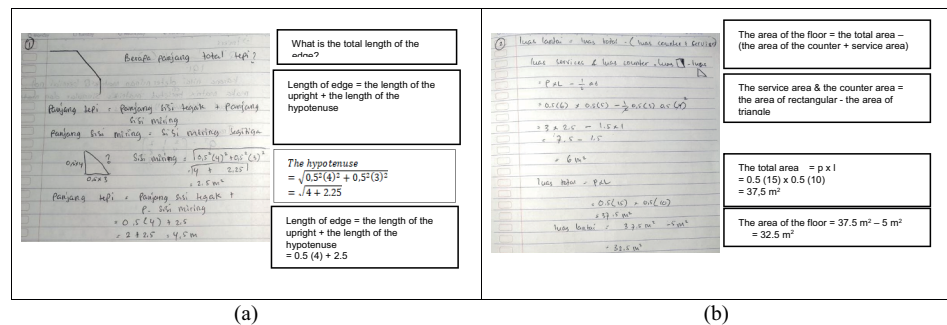 ①
Berapa panjang total tepi?
Panjang tepi = panjang sisi tegak + panjang
sisi miring
Panjang sisi miring = sisi miring segitiga
0,5x4
?
0.5 x 3
Sisi miring = √0,5²(4)² + 0,5²(3)²
√4 + 2.25
= 2.5 m²
Panjang tepi = Panjang sisi tegak +
p. sisi miring
= 0.5 (4) + 2.5
= 2 + 2.5 = 4,5 m
What is the total length of the
edge?
Length of edge = the length of the
upright + the length of the
hypotenuse
The hypotenuse
= √0,5²(4)² + 0,5²(3)²
= √4 + 2.25
Length of edge = the length of the
upright + the length of the
hypotenuse
= 0.5 (4) + 2.5
(a)
②
luas lantai = luas total - (luas counter + service)
luas services & luas counter = luas - luas
= p x L - ½ a t
= 3 x 2.5 - 1.5 x 1
= 7.5 - 1.5
= 6 m²
luas total = p x L
= 0.5(15) x 0.5(10)
= 37.5 m²
luas lantai = 37.5 m² - 5 m²
= 32.5 m²
The area of the floor = the total area –
(the area of the counter + service area)
The service area & the counter area =
the area of rectangular - the area of
triangle
The total area = p x l
= 0.5 (15) x 0.5 (10)
= 37,5 m²
The area of the floor = 37.5 m² – 5 m²
= 32.5 m²
(b)